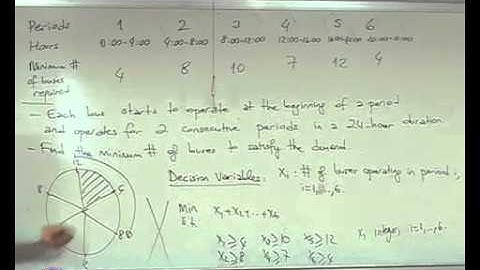 Periods 1 2 3 4 5 6
Hours 0:00-4:00 4:00-8:00 8:00-12:00 12:00-16:00 16:00-20:00 20:00-0:00
Minimum # of buses required 4 8 10 7 12 4
- Each bus starts to operate at the beginning of a period
and operates for 2 consecutive periods in a 24-hour duration.
- Find the minimum # of buses to satisfy the demand.
12
8
4
Decision Variables: xi : # of buses operating in period i,
i=1,..,6.
Min x1+x2+...+x6
s.t.
x1≥4 x3≥10 x5≥12
x2≥8 x4≥7 x6≥4
xi integer, i=1,..,6.